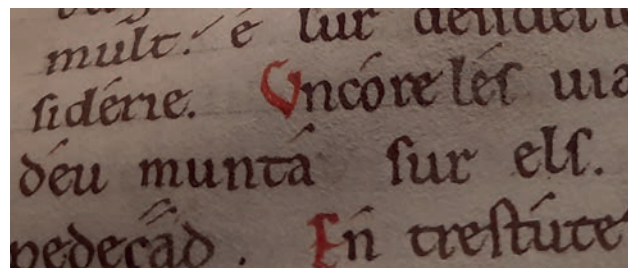 mult. é lur deſiderie
ſidérie. Uncóre léſ uia
déu muntá ſur elſ.
pedecád. En treſtúte